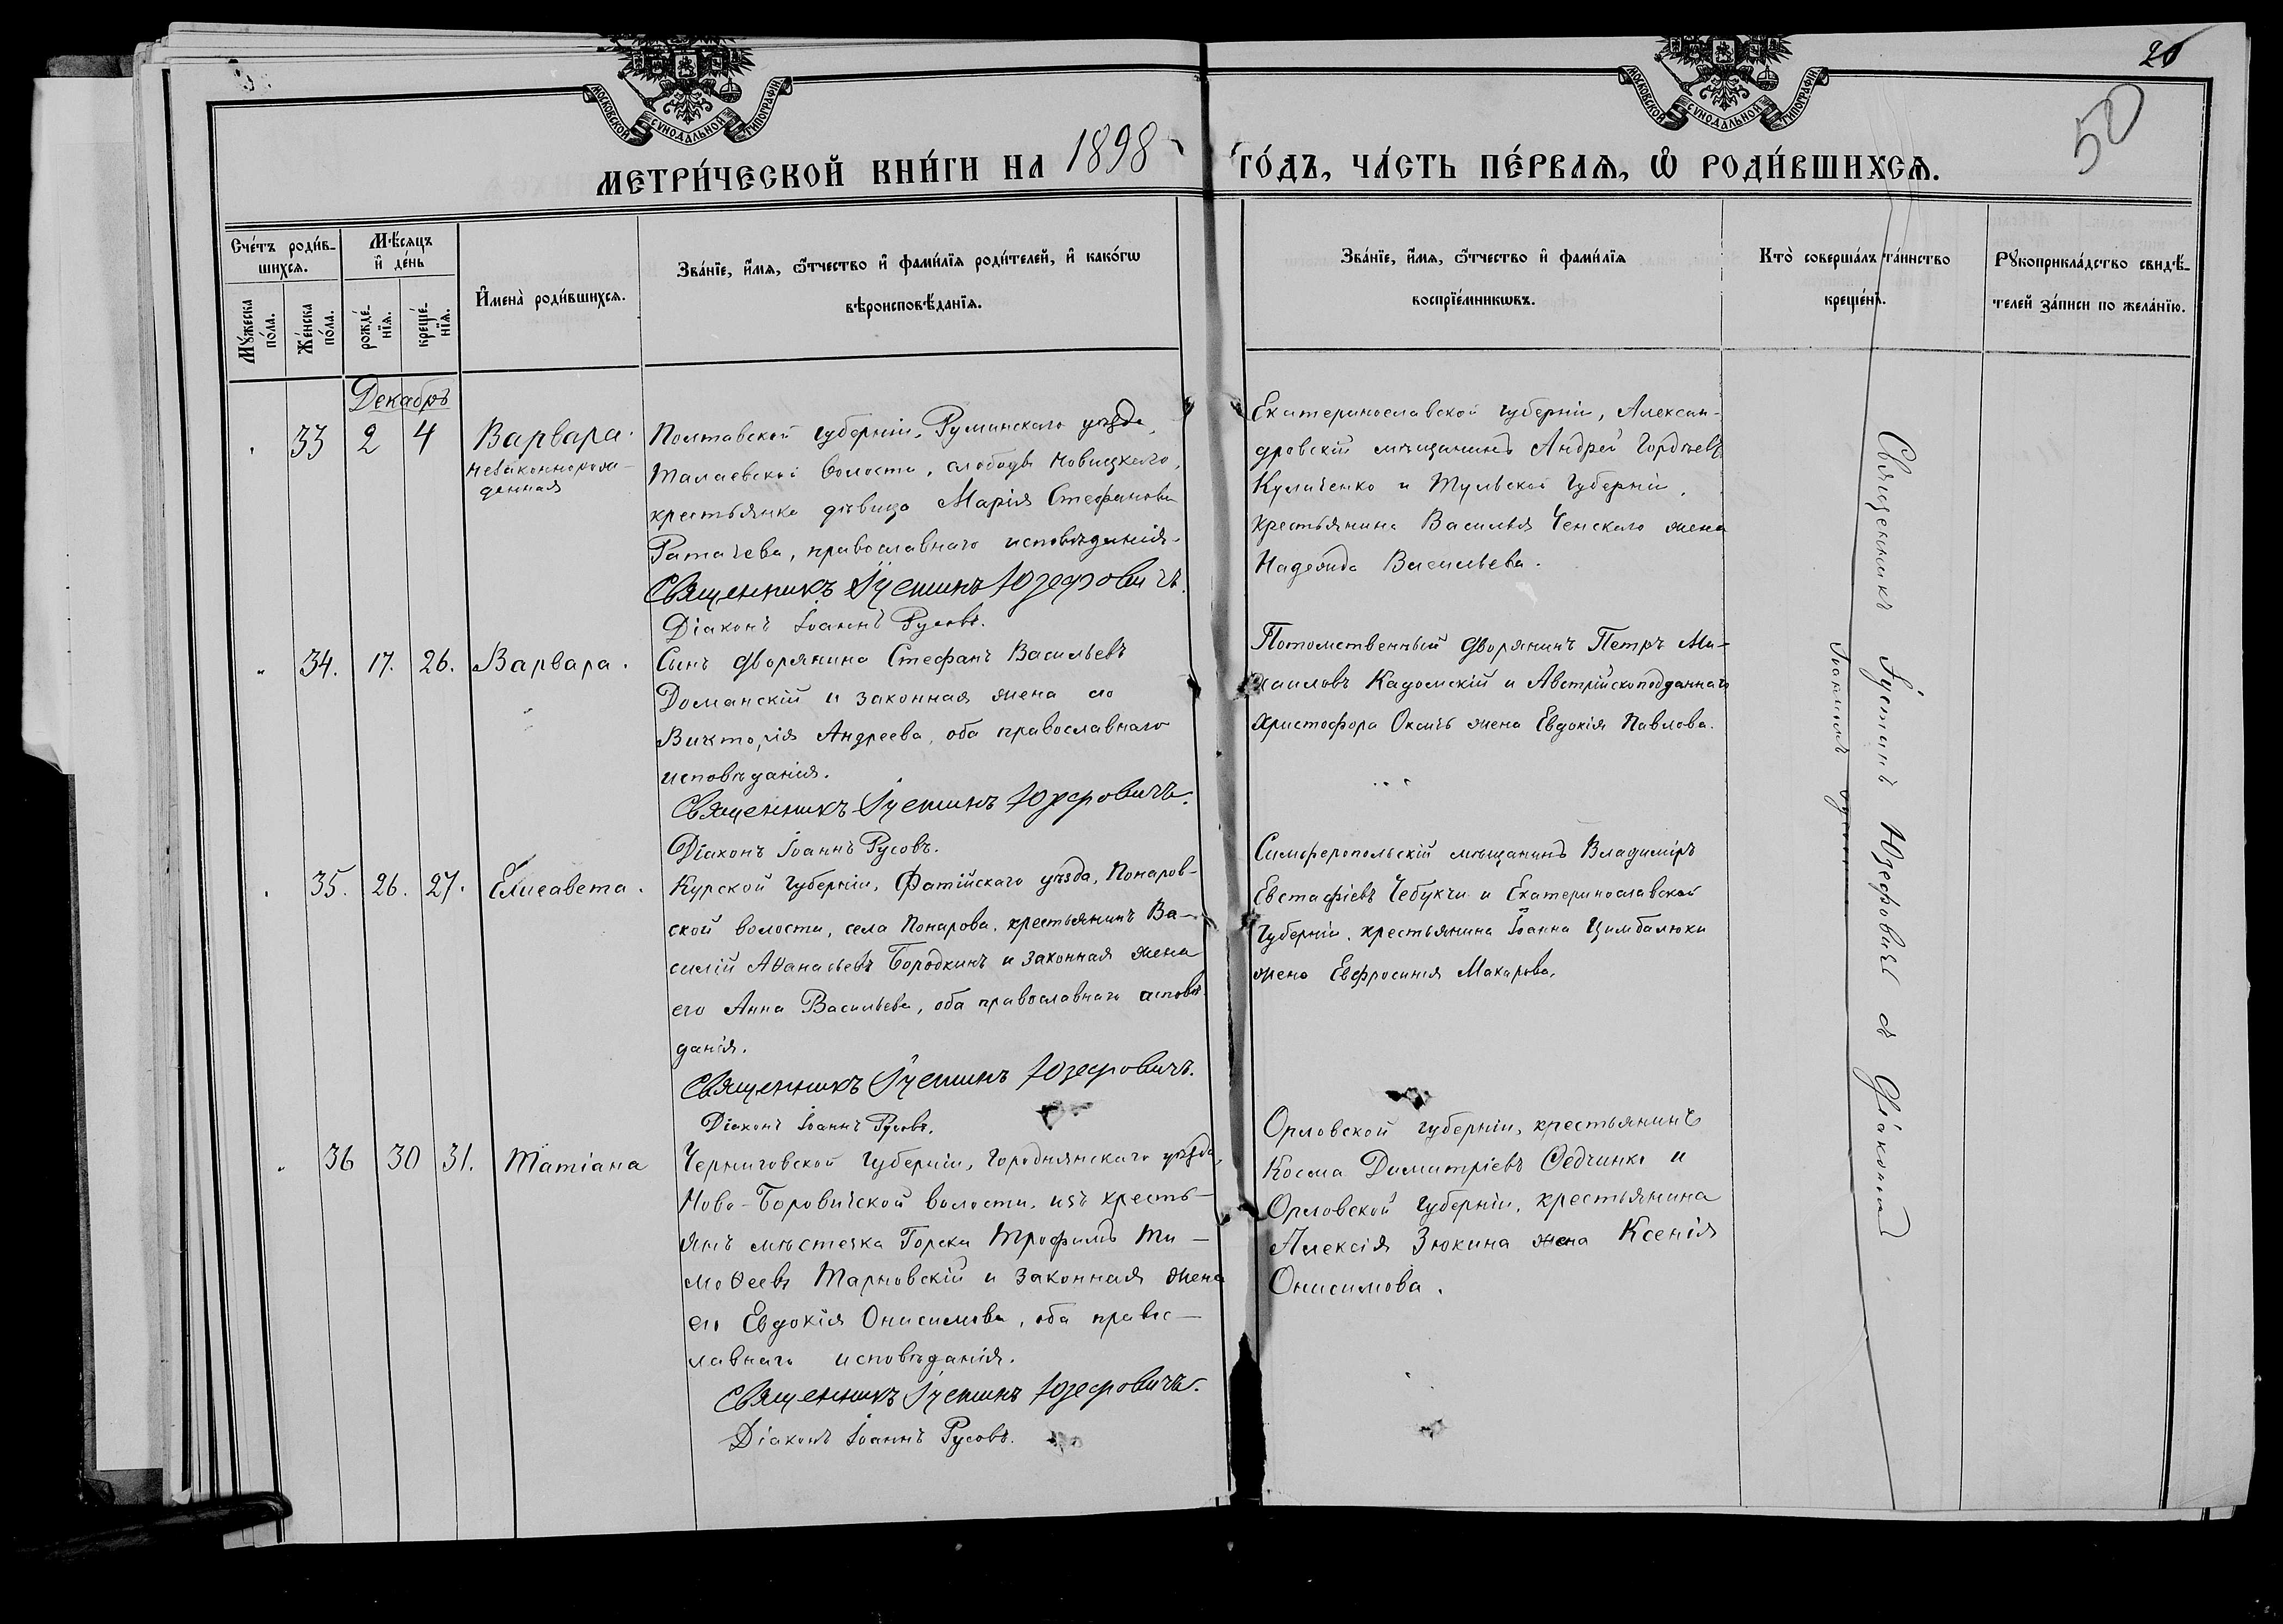 26
50
МОСКОВСКОЙ СѴНОДАЛЬНОЙ ТИПОГРАФІИ
МОСКОВСКОЙ СѴНОДАЛЬНОЙ ТИПОГРАФІИ
МЕТРИ́ЧЕСКОЙ КНИ́ГИ НА 1898 ГО́ДЪ, ЧА́СТЬ ПЕ́РВАѦ, Ѡ҆ РОДИ́ВШИХСѦ.
Сче́тъ роди́в-
шихсѧ.
Мꙋ́жеска по́ла.
Же́нска по́ла.
Мѣ́сѧцъ
и҆ де́нь
рожде́-
нїѧ.
креще́-
нїѧ.
И҆мена̀ роди́вшихсѧ.
Зва́нїе, и҆́мѧ, ѻ҆́тчество и҆ фами́лїѧ роди́телей, и҆ како́гѡ
вѣроисповѣ́данїѧ.
Зва́нїе, и҆́мѧ, ѻ҆́тчество и҆ фами́лїѧ
воспрїе́мникѡвъ.
Кто̀ соверша́лъ та́инство
креще́нїѧ.
Рꙋкоприкла́дство свидѣ́-
телей за́писи по жела́нїю.
Декабрь
33 2 4 Варвара.
незаконнорож-
денная
Полтавской губерніи, уѣзда,
Талаевской волости, слободы Новицкаго,
крестьянка дѣвица Марія Стефанова
Рагачева, православнаго исповѣданія.
Священникъ Іустинъ Юзефовичъ.
Діаконъ Іоаннъ Русовъ.
Екатеринославской губерніи, Алексан-
дровскій мѣщанинъ Андрей Гордѣевъ
Куличенко и Тульской губерніи,
крестьянина Василья Ченскаго жена
Надежда Васильева.
34. 17. 26. Варвара.
Сынъ дворянина Стефанъ Васильевъ
Доманскій и законная жена его
Викторія Андреева, оба православнаго
исповѣданія.
Священникъ Іустинъ Юзефовичъ.
Діаконъ Іоаннъ Русовъ.
Потомственный дворянинъ Петръ Ми-
хаиловъ Кадомскій и Австрійскоподданнаго
Христофора жена Евдокія Павлова.
35. 26. 27. Елисавета.
Курской губерніи, Фатійскаго уѣзда, Понаров-
ской волости, села Понарова, крестьянинъ Ва-
силій Аѳанасьевъ Бородкинъ и законная жена
его Анна Васильева, оба православнаго исповѣ-
данія.
Священникъ Іустинъ Юзефовичъ.
Діаконъ Іоаннъ Русовъ.
Симферопольскій мѣщанинъ Владиміръ
Евстафіевъ Чебукчи и Екатеринославской
губерніи, крестьянина Іоанна Цимбалюки
жена Евфросинія Макарова.
36 30 31. Татіана
Черниговской губерніи, Городнянскаго уѣзда,
Ново-Боровичской волости, изъ кресть-
янъ мѣстечка Горска Трофимъ Ти-
моѳеевъ Тарновскій и законная жена
его Евдокія Онисимова, оба правос-
лавнаго исповѣданія.
Священникъ Іустинъ Юзефовичъ.
Діаконъ Іоаннъ Русовъ.
Орловской губерніи, крестьянинъ
Косма Димитріевъ Ѳедчинко и
Орловской губерніи, крестьянина
Алексія Зюкина жена Ксенія
Онисимова.
Священникъ Іустинъ Юзефовичъ съ Діакономъ
Іоанномъ